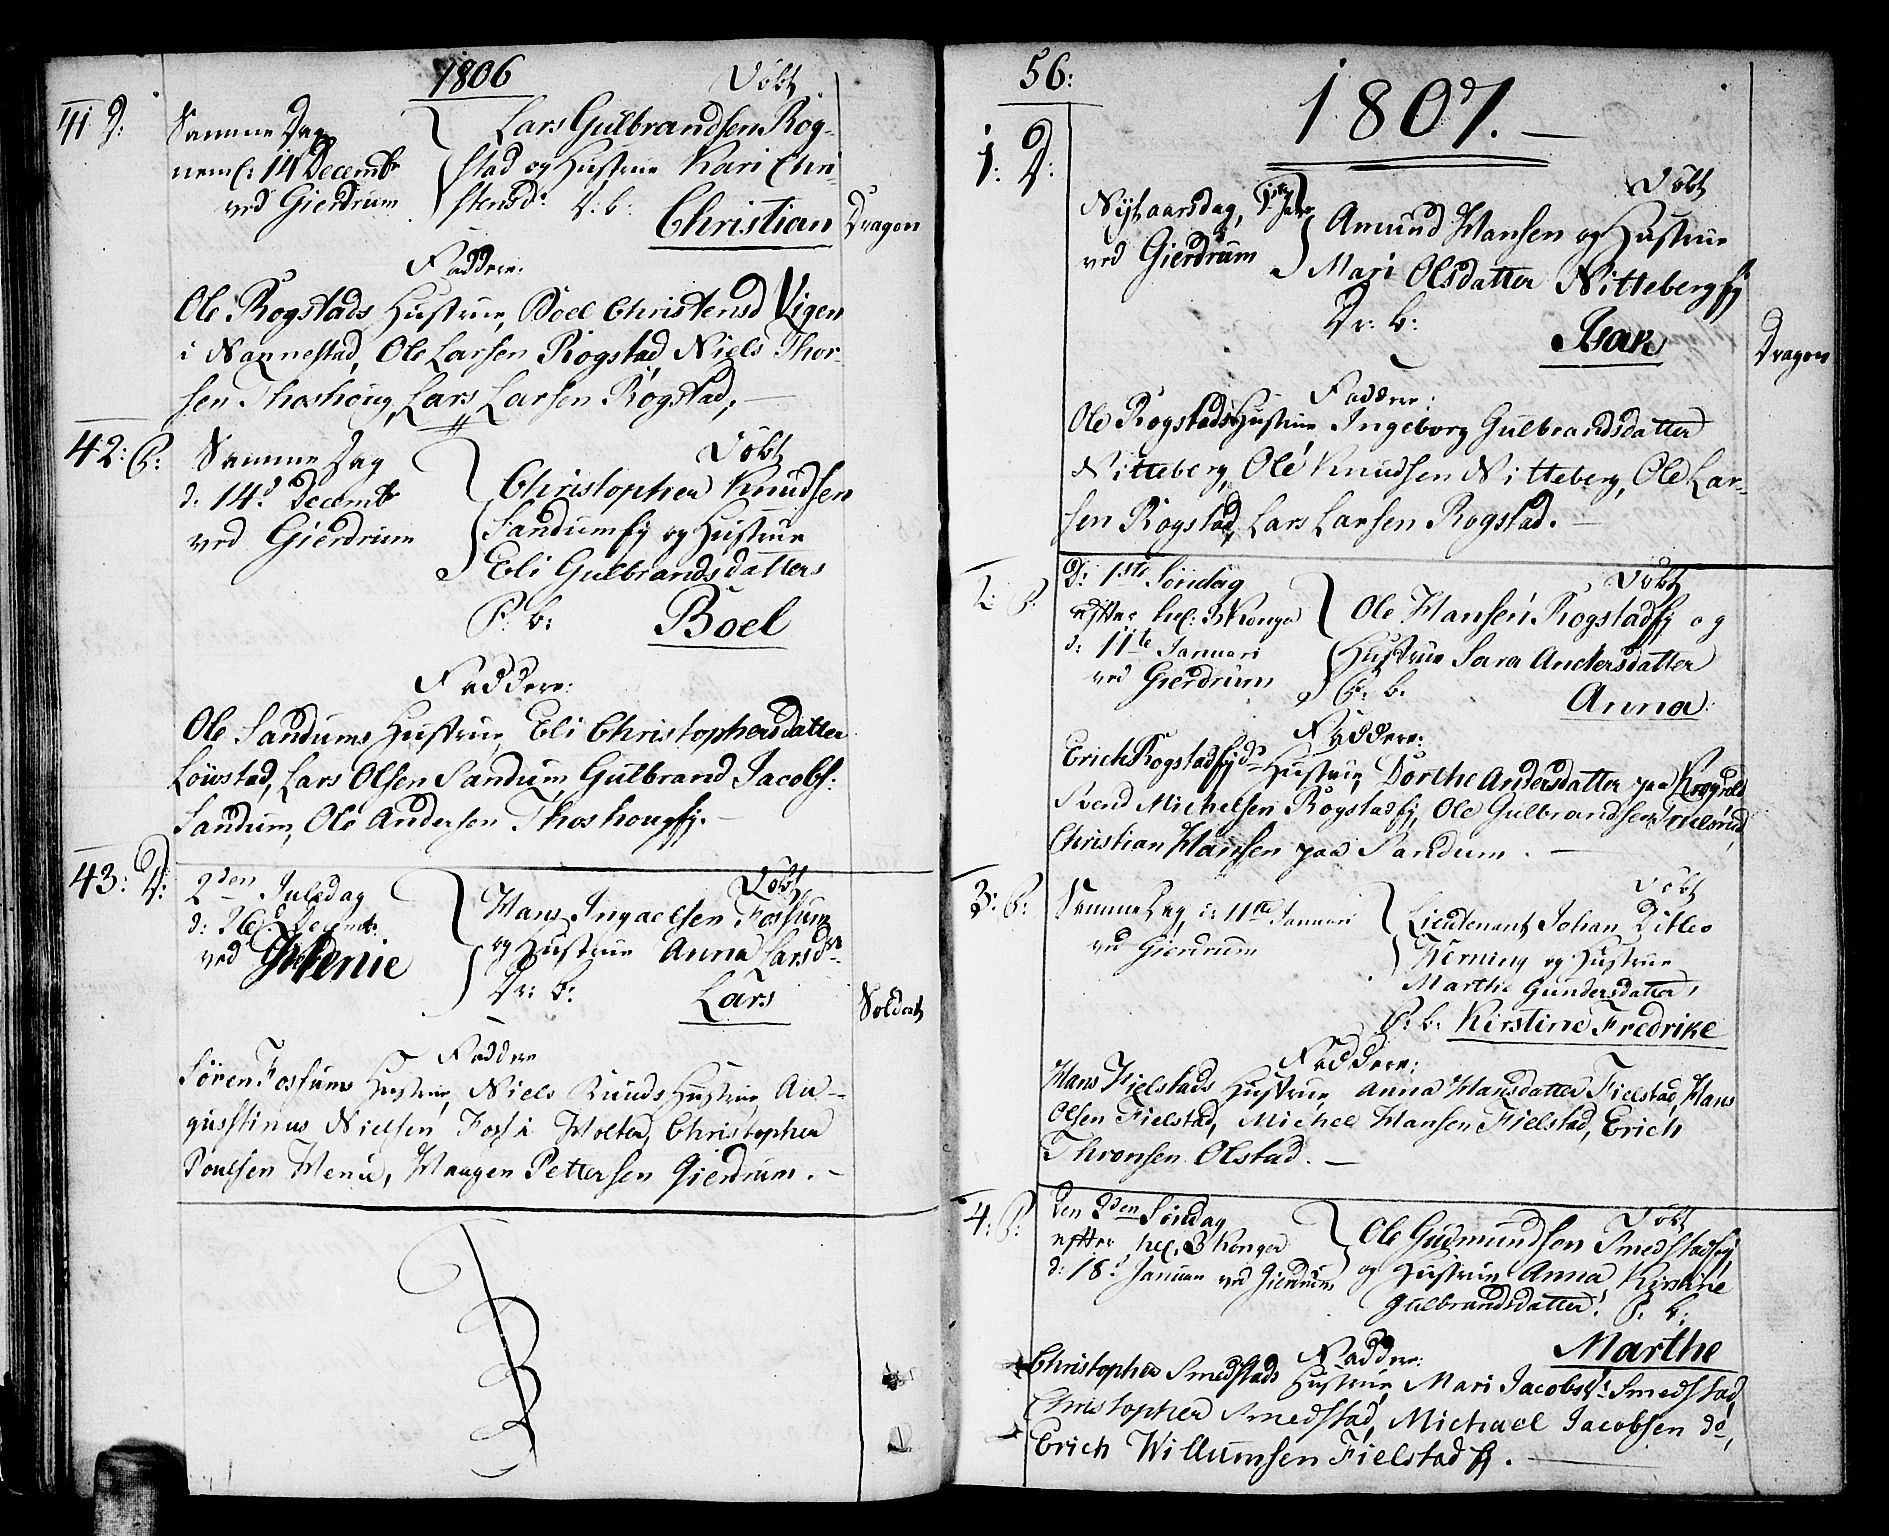 1806
Døbt
41 D:
Samme Dag
neml: 14 Decembr
ved Gierdrum
Lars Gulbrandsen Rog-
stad og Hustrue Kari Chri-
stensd: D: b:
Christian
Dragon
Faddere:
Ole Rogstads Hustrue, Boel Christensd Vigen
i Nannestad, Ole Larsen Rogstad, Niels Thor-
sen Thoshoug, Lars Larsen Rogstad,
42: P:
Samme Dag
d: 14d Decembr
ved Gierdrum
Døbt
Christopher Knudsen
Sandumsy og Hustrue
Eli Gulbrandsdatters
P: b:
Boel
Faddere:
Ole Sandums Hustrue, Eli Christophersdatter
Løvstad, Lars Olsen Sandum, Gulbrand Jacobs:
Sandum, Ole Andersen Thoshougsy.
43: D:
2den Juledag
d: 26d Decembr
ved Henie
Døbt
Hans Ingaelsen Fossum
og Hustrue Anna Larsdr
Dr: b:
Lars
Soldat
Faddere
Søren Fossums Hustrue, Niels Ruuds Hustrue, Au-
gusstinus Nielsen Foss i Holter, Christopher
Poulsen Henie, Haagen Pettersen Gierdrum.
56:
1807.
1: D:
Nythaarsdag, 1ste Janr
ved Gierdrum
Døbt
Amund Hansen og Hustrue
Mari Olsdatter Nittebergsy
Dr: b:
Isak
Dragon
Faddere:
Ole Rogstads Hustrue Ingeborg Gulbrandsdatter
Nitteberg, Ole Knudsen Nitteberg, Ole Lar-
sen Rogstad, Lars Larsen Rogstad.
2: P:
D: 1ste Søndag
efter hel: 3 Konger
d: 11te Januari
ved Gierdrum
Døbt
Ole Hansen Rogstadsy og
Hustrue Sara Andersdatter
P: b:
Anna
Faddere:
Erich Rogstadsyds Hustrue, Dorthe Andersdatter paa Krogvold
Svend Michelsen Rogstadsy, Ole Gulbrandsen Trulsrud,
Christian Hansen paa Sandum.
3: P:
Samme Dag, d: 11te Januari
ved Gierdrum
Døbt
Lieutenant Johan Ditlev
Werning og Hustrue
Marthe Gundersdatter,
P: b: Kirstine Fredrike
Faddere:
Hans Fielstads Hustrue, Anna Hansdatter Fielstad, Hans
Olsen Fielstad, Michel Hansen Fielstad, Erich
Thronsen Olstad.
4: P:
Den 2den Søndag
efter hel. 3 Konger
d: 18d Januari ved Gierdrum
Døbt
Ole Gudmundsen Smedstadsy,
og Hustrue Anna Kirstine
Gulbrandsdatter: P: b:
Marthe
Faddere:
Christopher Smedstads Hustrue, Mari Jacobsd: Smedstad,
Christopher Smedstad, Michael Jacobsen do,
Erich Willumsen Fielstad sy.